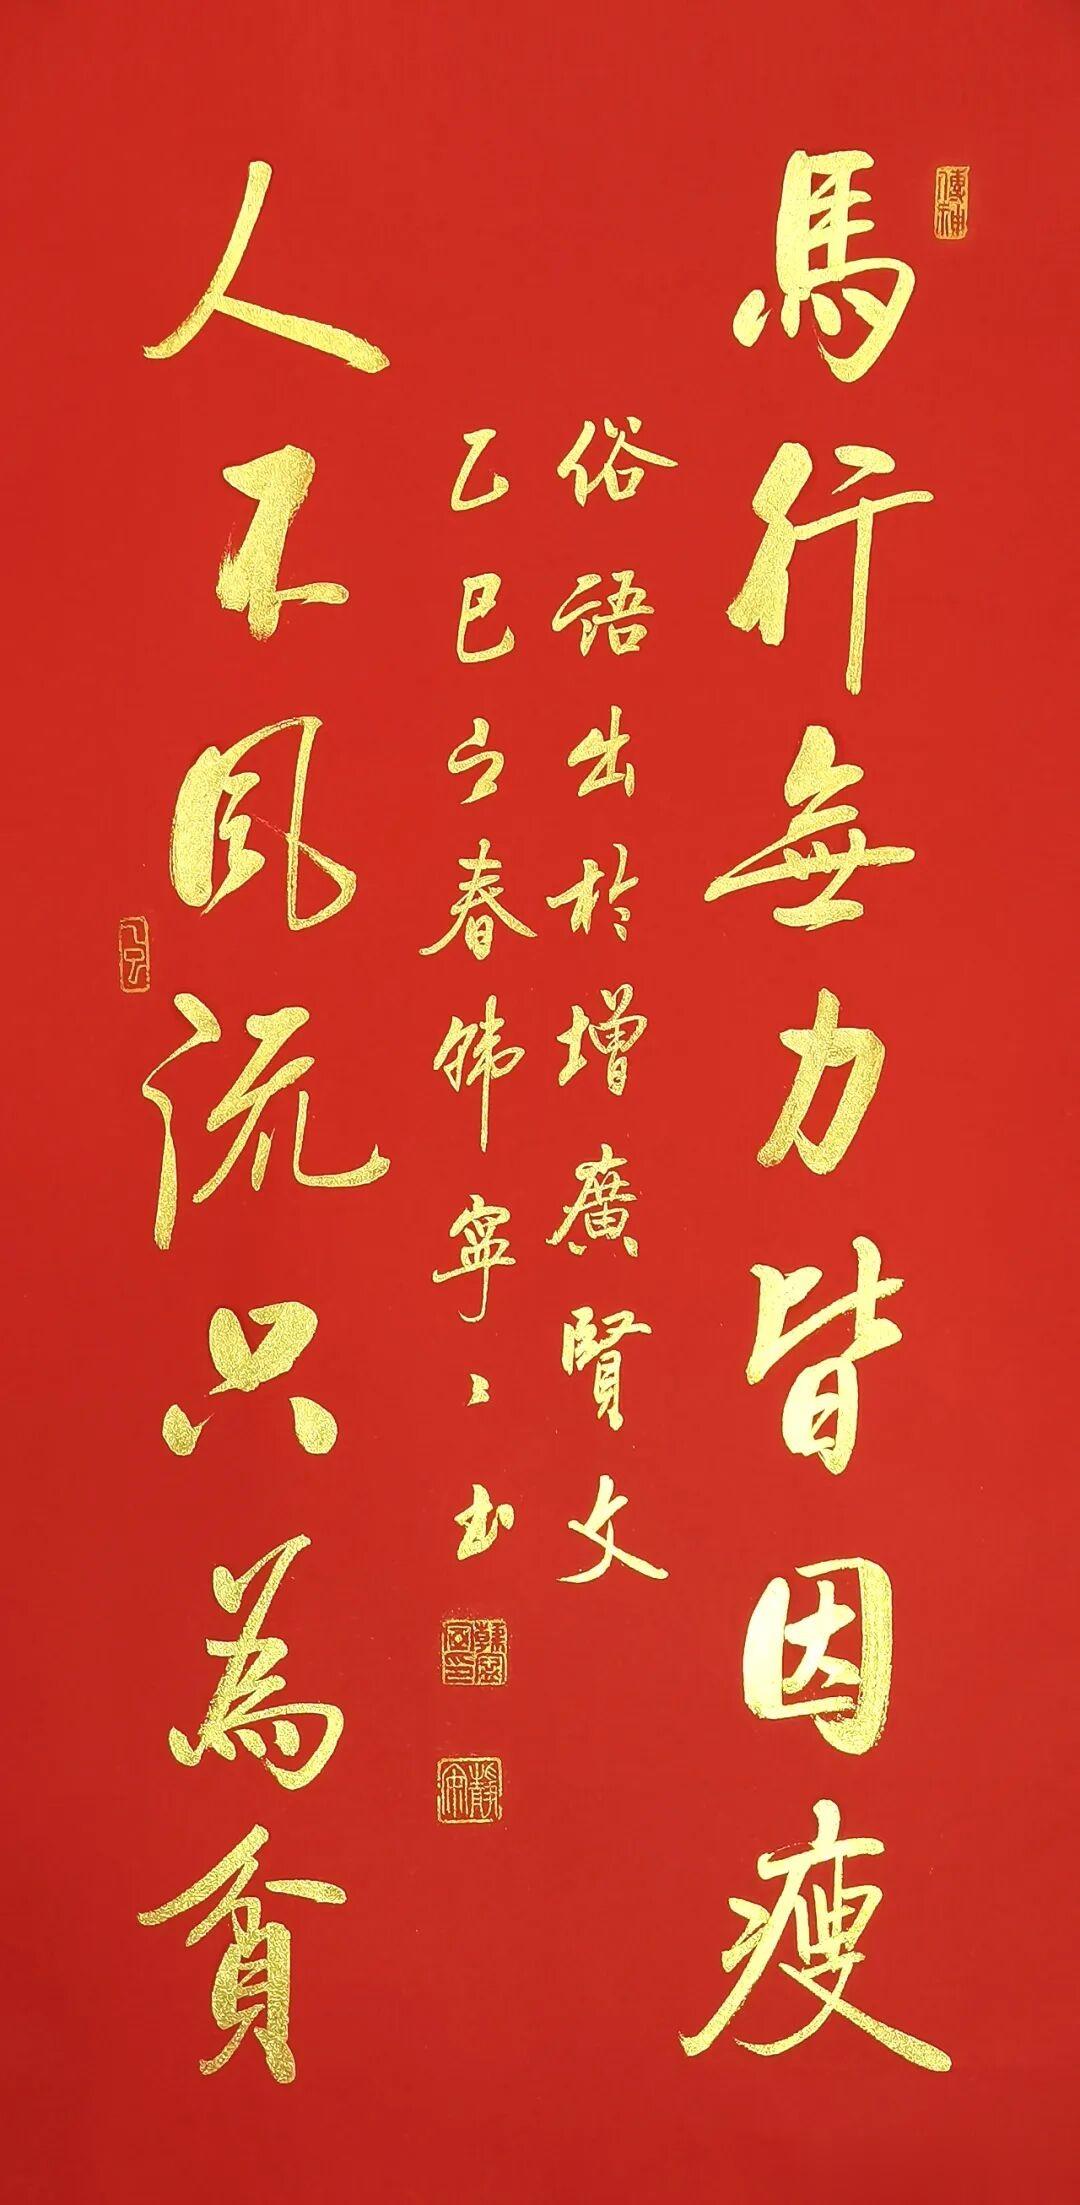 馬行無力皆因瘦
俗語出於增廣賢文
乙巳之春韩寧〻书
人不風流只為貧
傳神